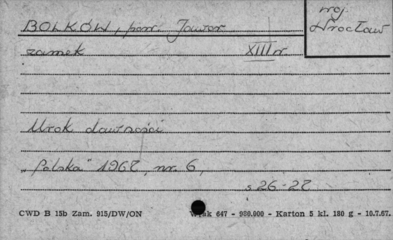 BOLKÓW, pow. Jawor
woj. Wrocław
zamek XIII w.
Urok dawności
"Polska" 1967, nr. 6,
s 26-27
CWD B 15b Zam. 915/DW/ON Wysk 647 - 980.000 - Karton 5 kl. 180 g - 10.7.67.